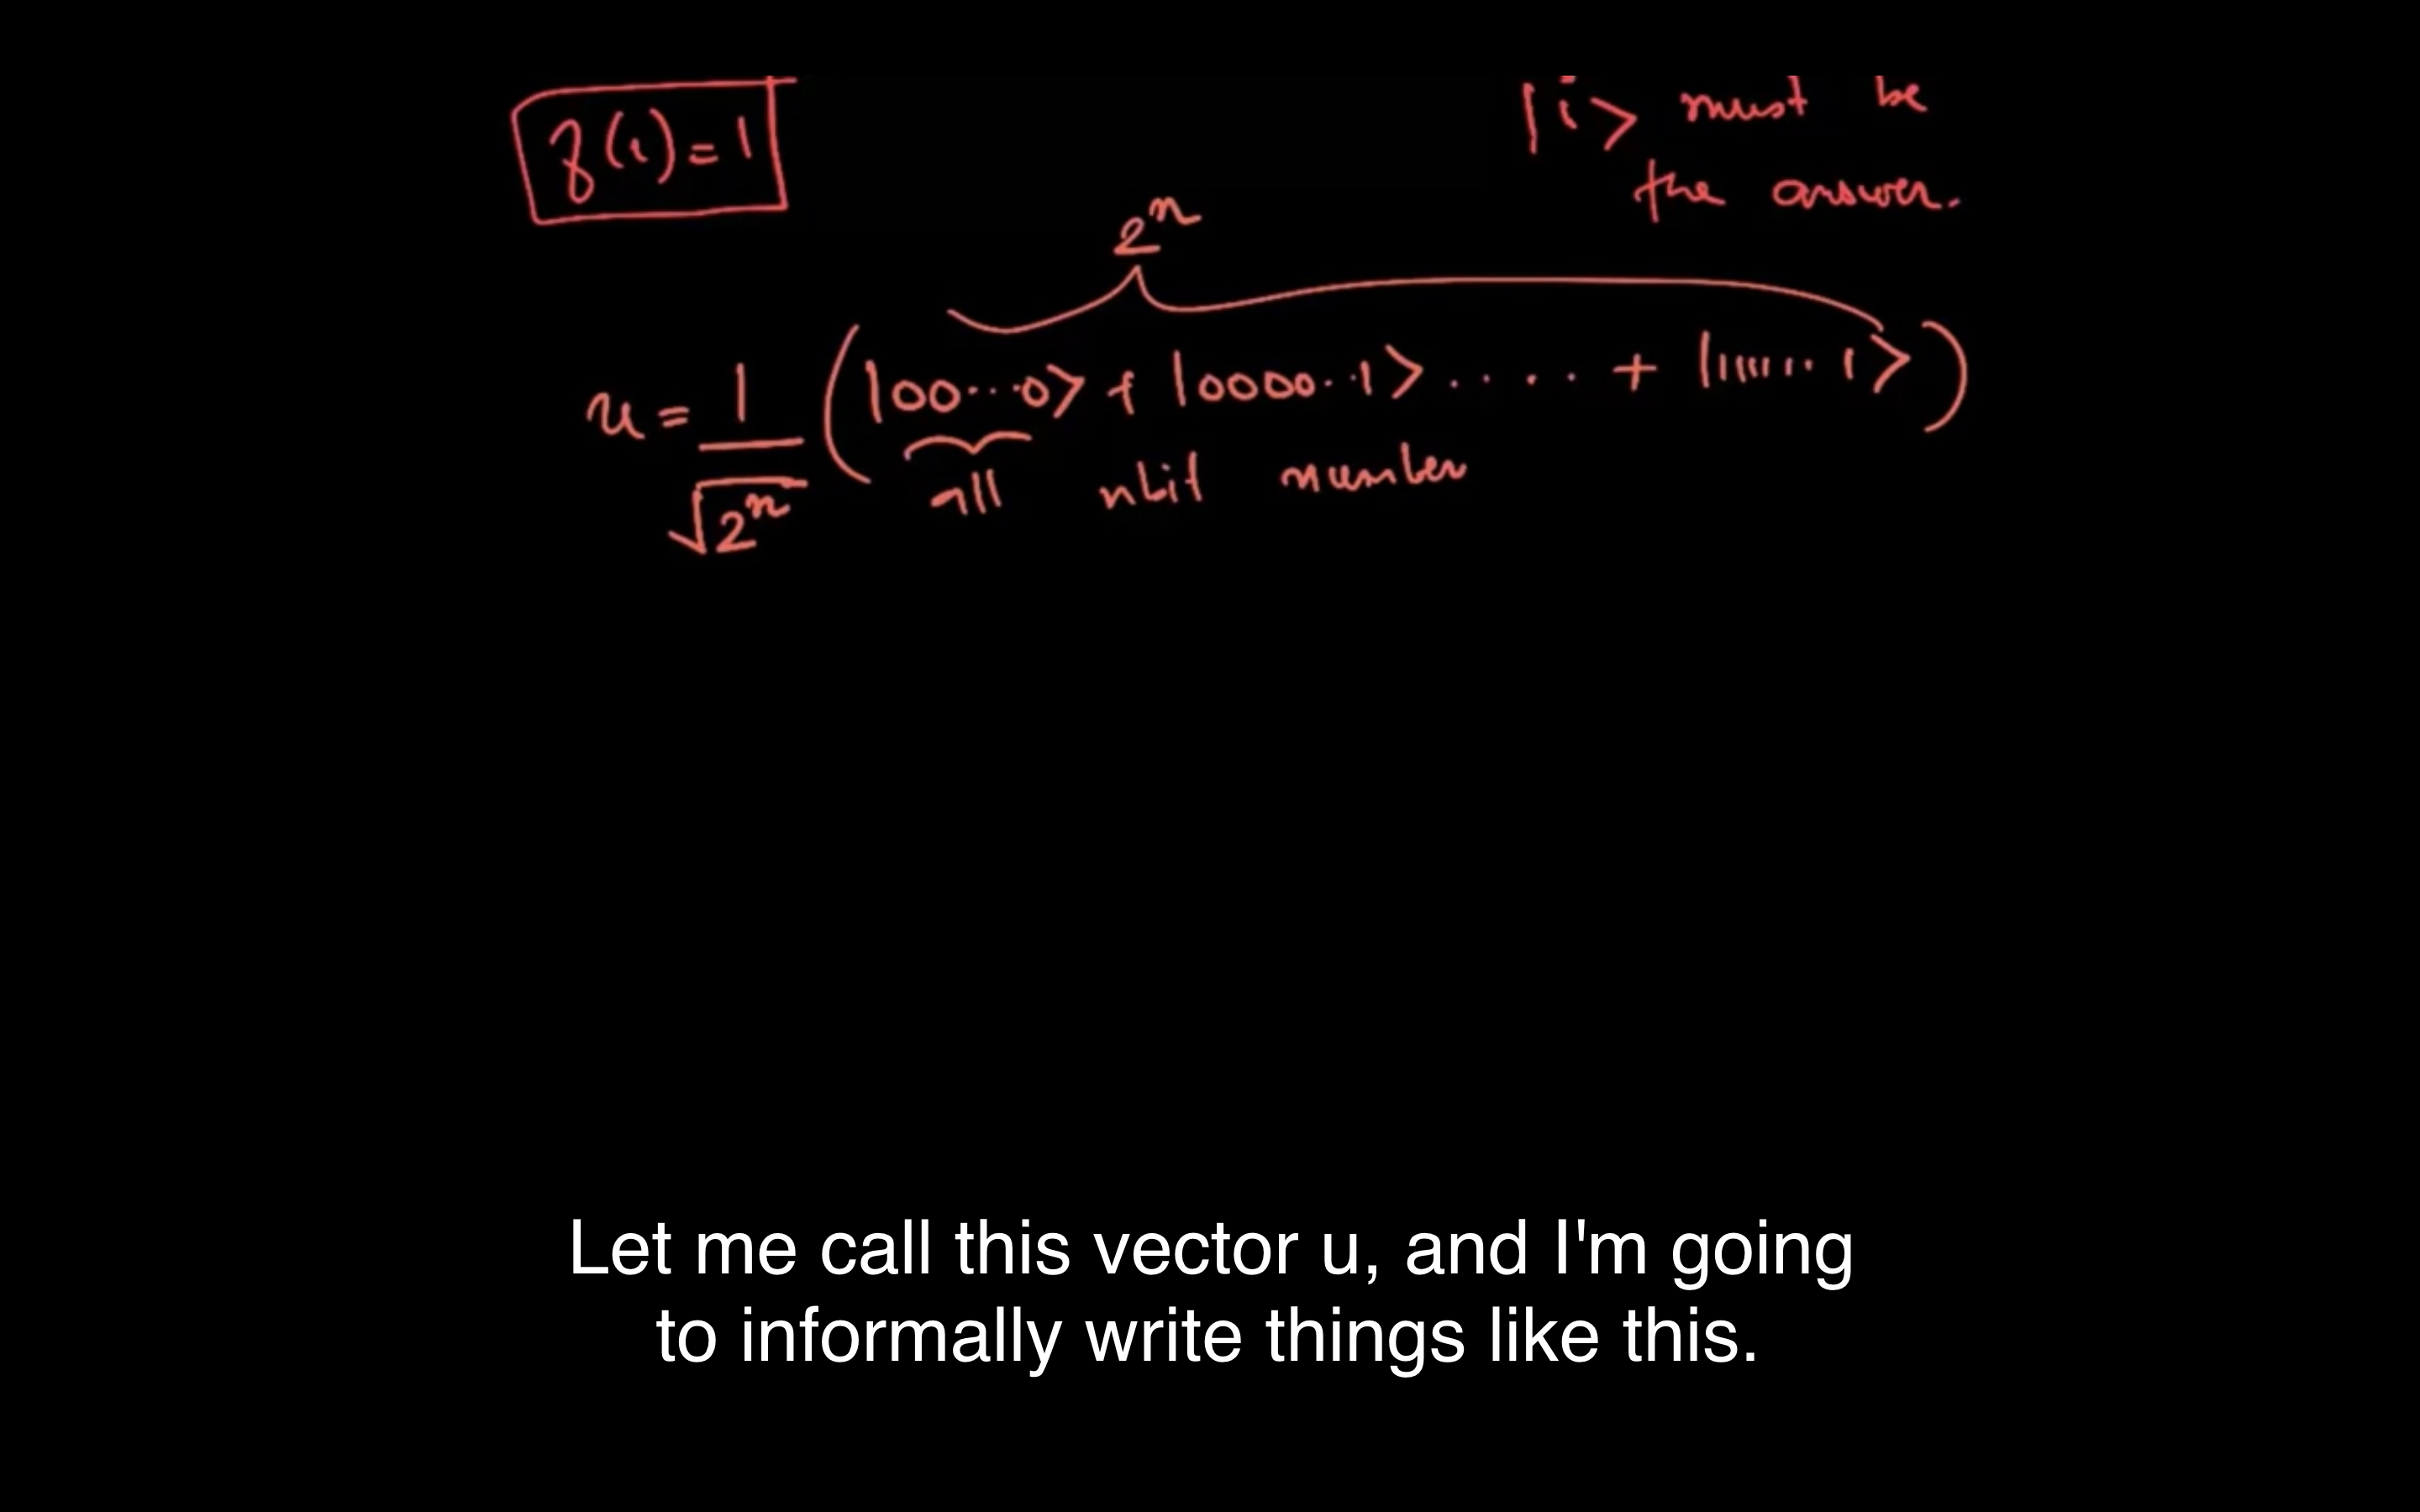 f(i) = 1
|i> must be
the answer.
2^n
u = 1/√2^n (|00...0> + |0000..1> .... + |111111...1>)
all nbit number
Let me call this vector u, and I'm going
to informally write things like this.